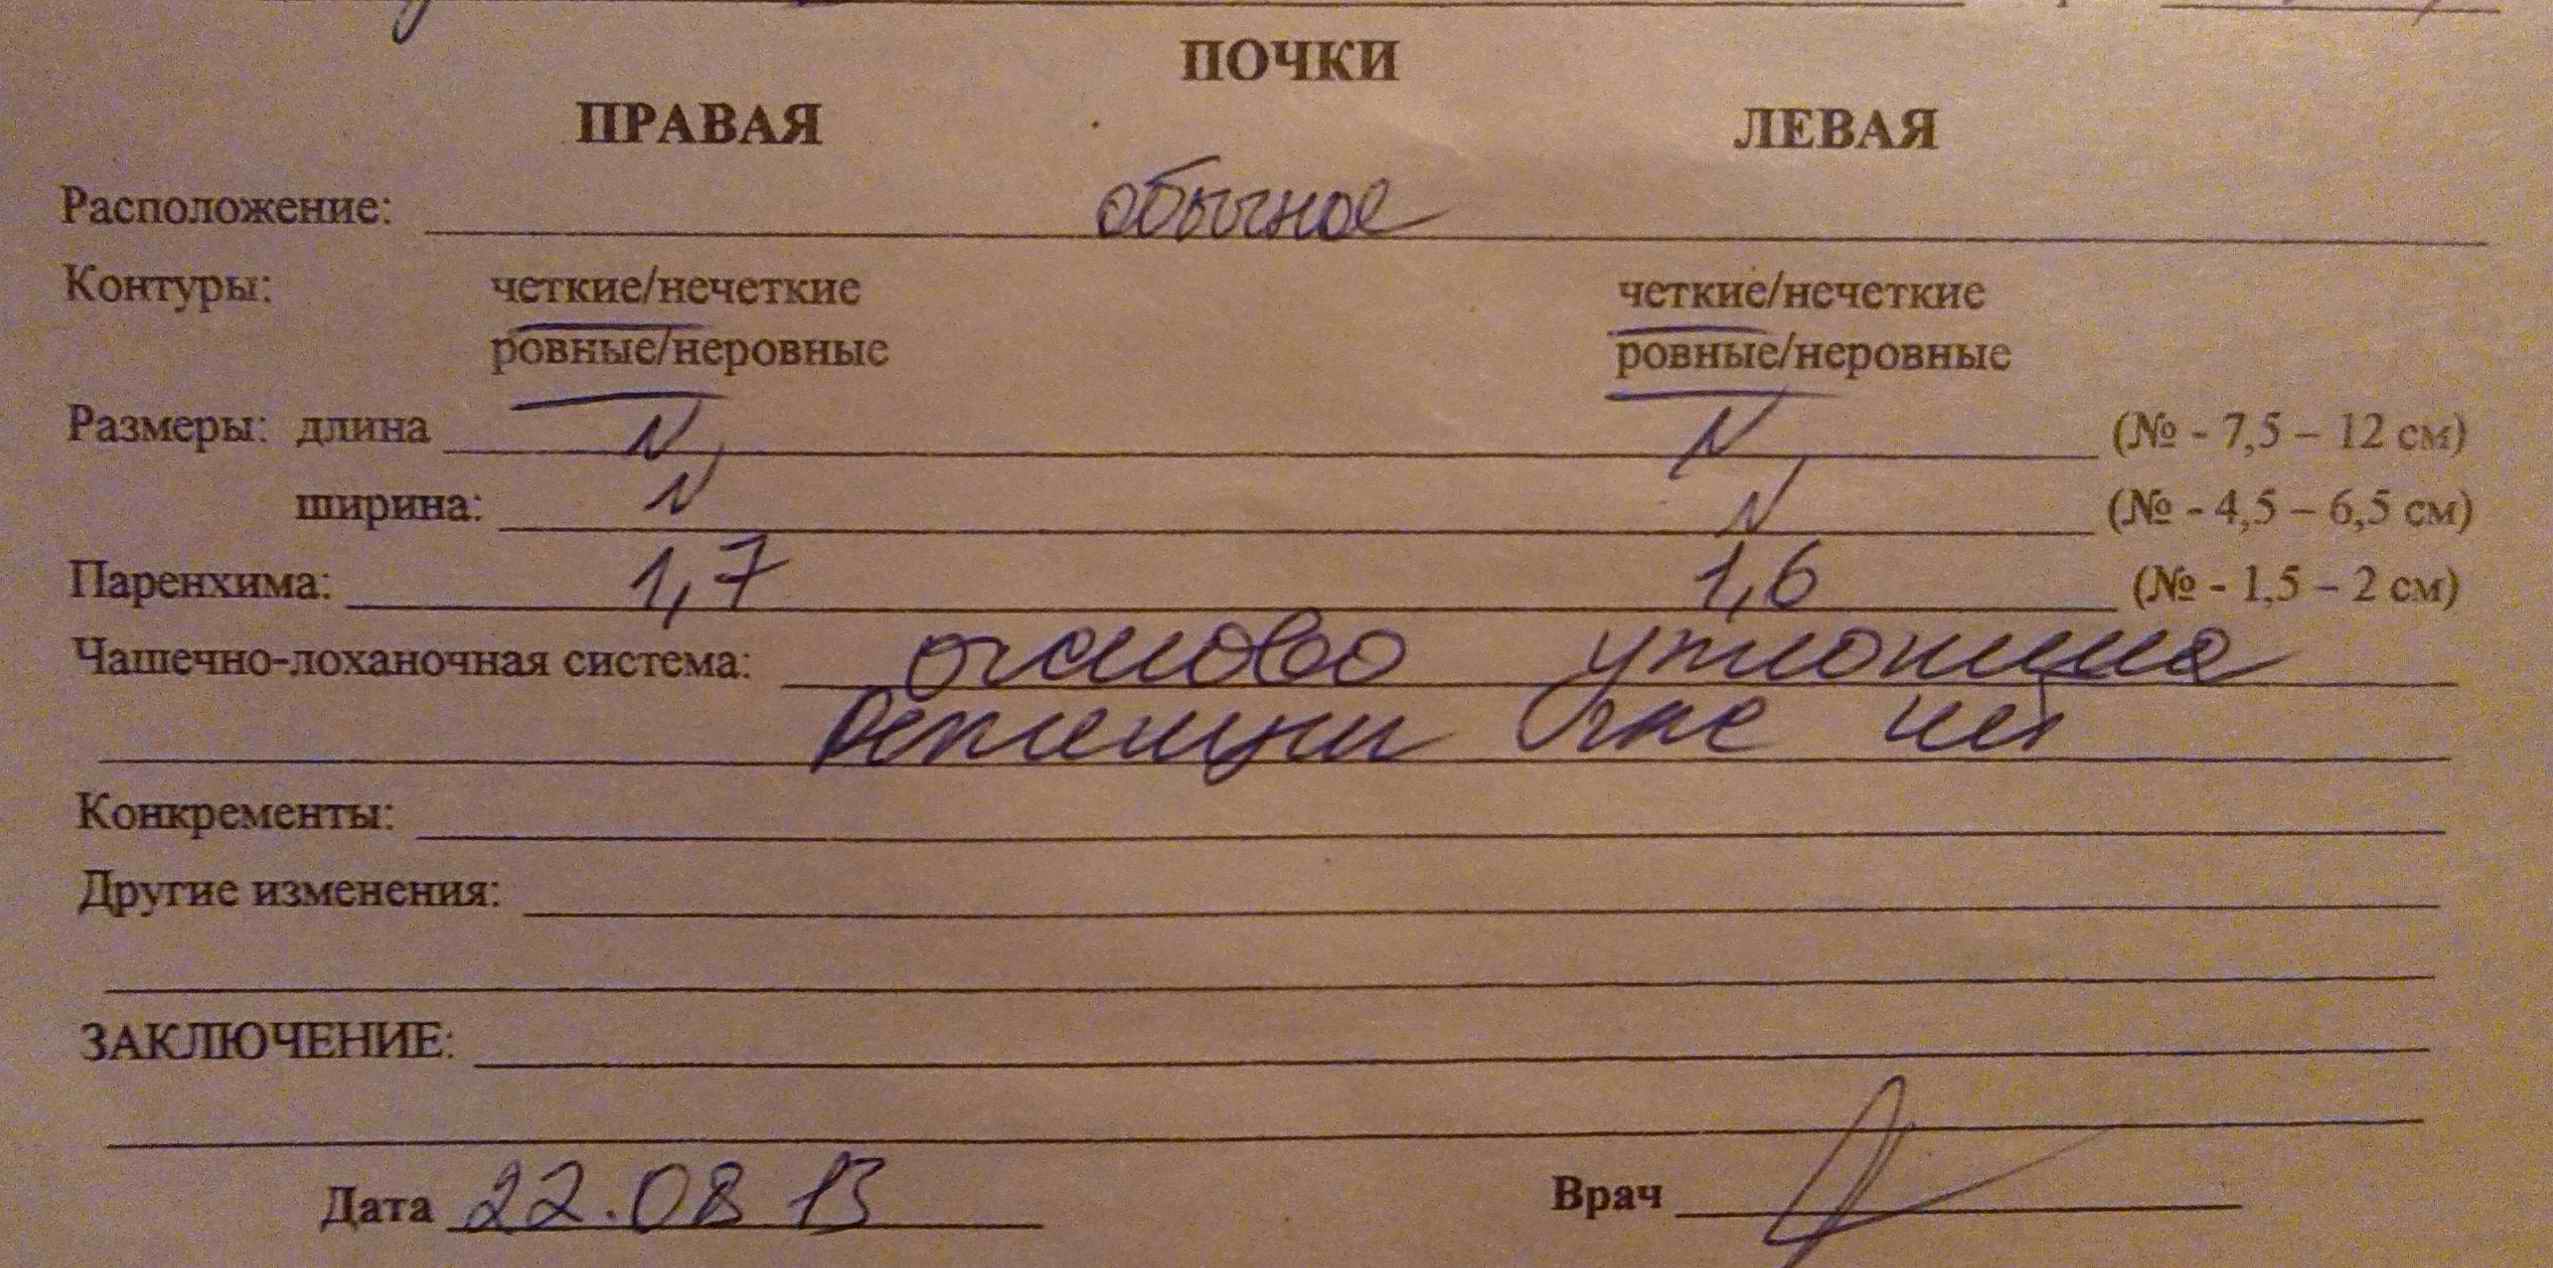 ПОЧКИ
ПРАВАЯ ЛЕВАЯ
Расположение: обычное
Контуры: четкие/нечеткие четкие/нечеткие
ровные/неровные ровные/неровные
Размеры: длина N N (№ - 7,5 – 12 см)
ширина: N N (№ - 4,5 – 6,5 см)
Паренхима: 1,7 1,6 (№ - 1,5 – 2 см)
Чашечно-лоханочная система: очагово уплотнена
Ретенции нет
Конкременты:
Другие изменения:
ЗАКЛЮЧЕНИЕ:
Дата 22.08 13 Врач